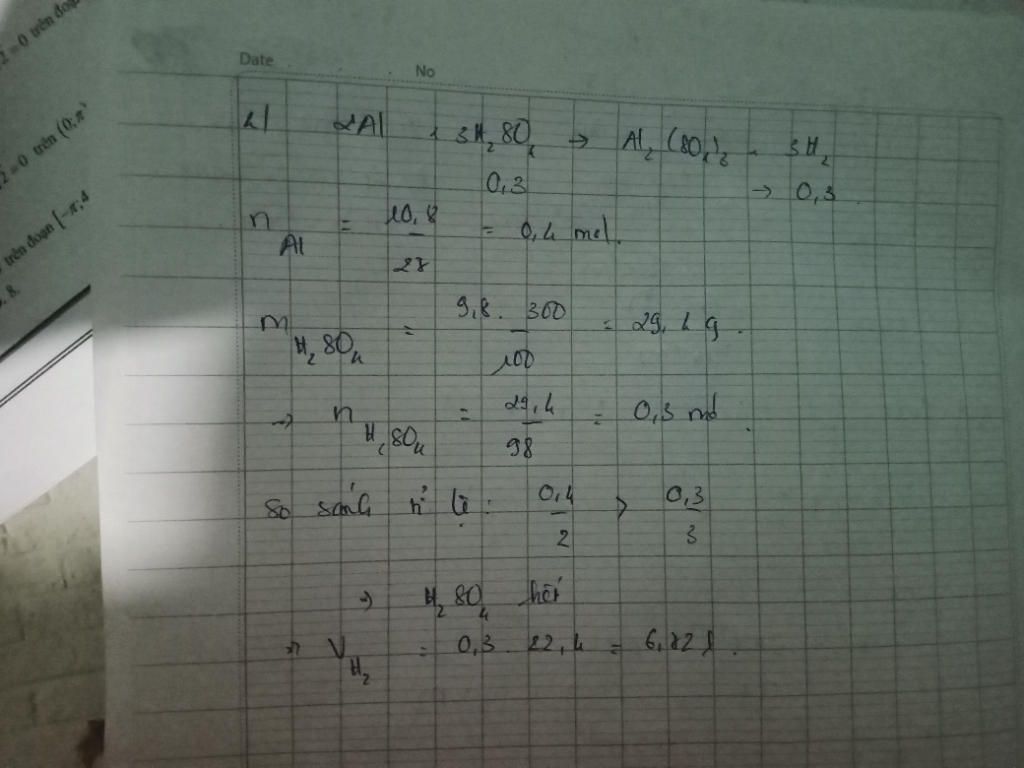 2 = 0 trên đoạn
2 = 0 trên (0;π)
trên đoạn [-π;4
8.
Date No
2/ 2Al + 3H₂SO₄ → Al₂(SO₄)₃ + 3H₂
0,3 → 0,3
n Al = 10,8/27 = 0,4 mol.
m H₂SO₄ = 9,8 . 300/100 = 29,4 g.
→ n H₂SO₄ = 29,4/98 = 0,3 mol.
So sánh tỉ lệ: 0,4/2 > 0,3/3
→ H₂SO₄ hết
→ V H₂ = 0,3 . 22,4 = 6,72 l.